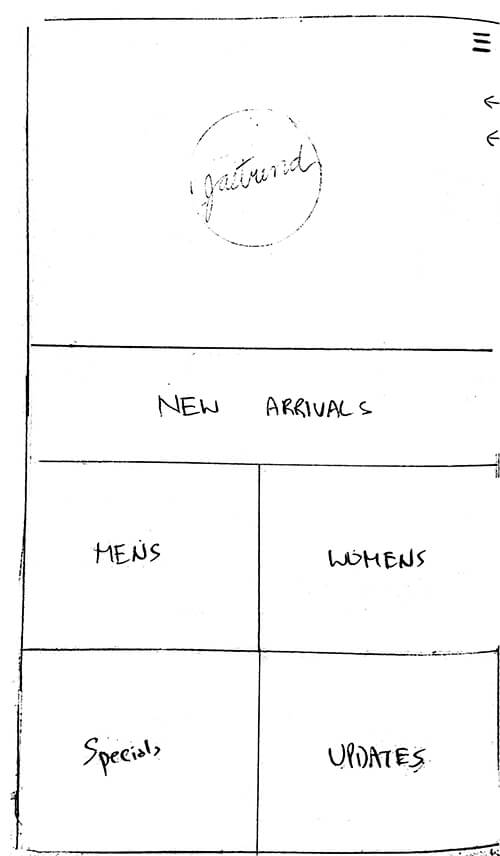 jaetrend
NEW ARRIVALS
MENS
WOMENS
Specials
UPDATES